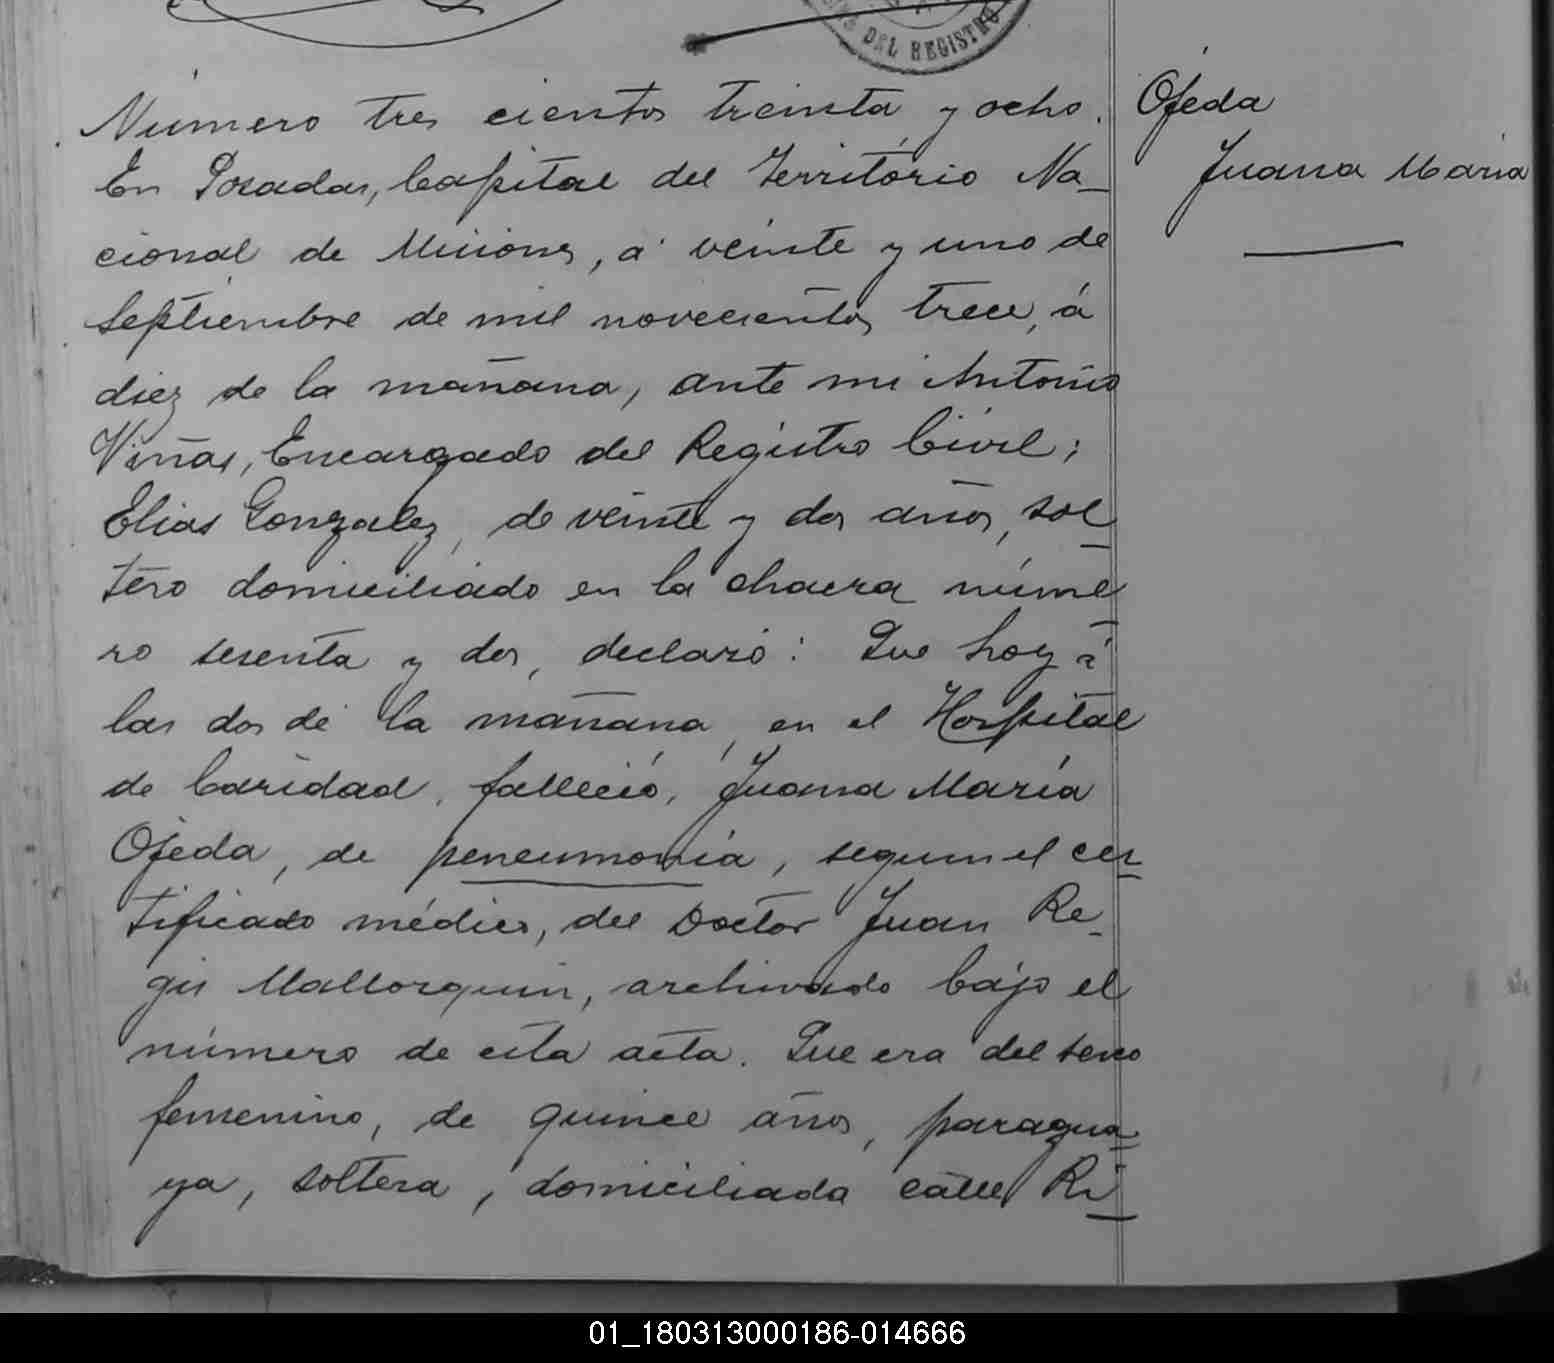 DEL REGISTRO
Número tres cientos treinta y ocho.
Ojeda
Juana Maria
En Posadas, Capital del Territorio Na-
cional de Misiones, á veinte y uno de
Septiembre de mil novecientos trece, á
diez de la mañana, ante mi Antonio
Viñas, Encargado del Registro Civil;
Elias Gonzalez, de veinte y dos años, sol-
tero domiciliado en la chacra núme-
ro sesenta y dos, declaró: Que hoy á
las dos de la mañana, en el Hospital
de Caridad, falleció, Juana María
Ojeda, de peneumonia, segun el cer-
tificado médico, del Doctor Juan Re-
gis Mallorquin, archivado bajo el
número de esta acta. Que era del sexo
femenino, de quince años, paragua-
ya, soltera, domiciliada calle Ri-
01_180313000186-014666